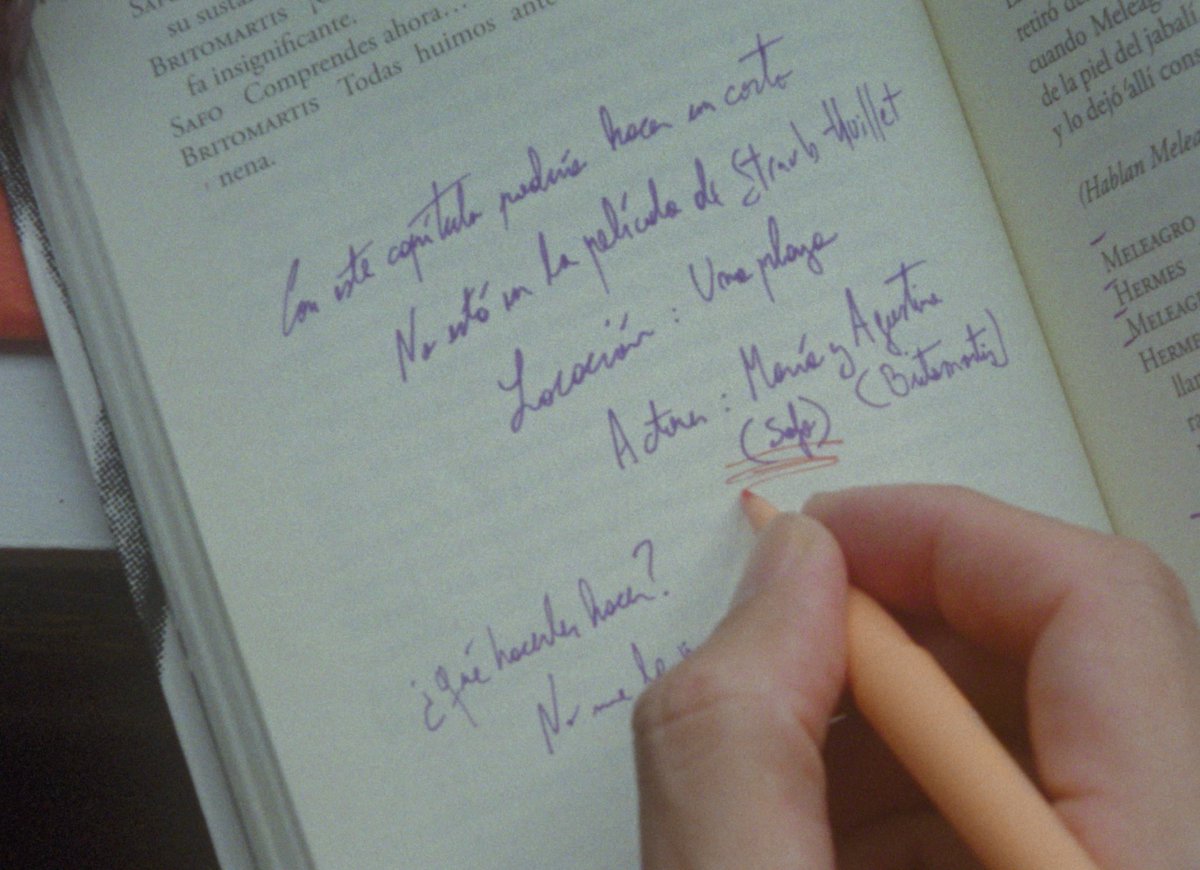 SAFO
su sustan
BRITOMARTIS ¡
fa insignificante.
SAFO Comprendes ahora...
BRITOMARTIS Todas huimos ante
nena.
Con este capítulo podría hacer un corto
No está en la película de Straub Huillet
Locación: Una playa
Actores: María y Agustina
(Safo) (Britomartis)
¿Qué hacerles hacer?
No me
retiró de
cuando Meleag
de la piel del jabalí
y lo dejó allí cons
(Hablan Melea
MELEAGRO
HERMES
MELEAG
HERME
llan